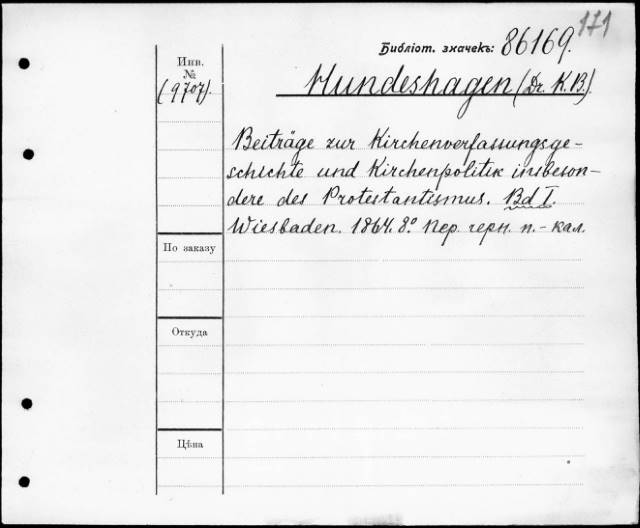 171
Библіот. значекъ: 86169.
Инв.
№
(9707).
Hundeshagen (Dr. K.B.)
Beiträge zur Kirchenverfassungsge-
schichte und Kirchenpolitik insbeson-
dere des Protestantismus. Bd I.
Wiesbaden. 1864. 8° Пер. черн. п.-кал.
По заказу
Откуда
Цѣна